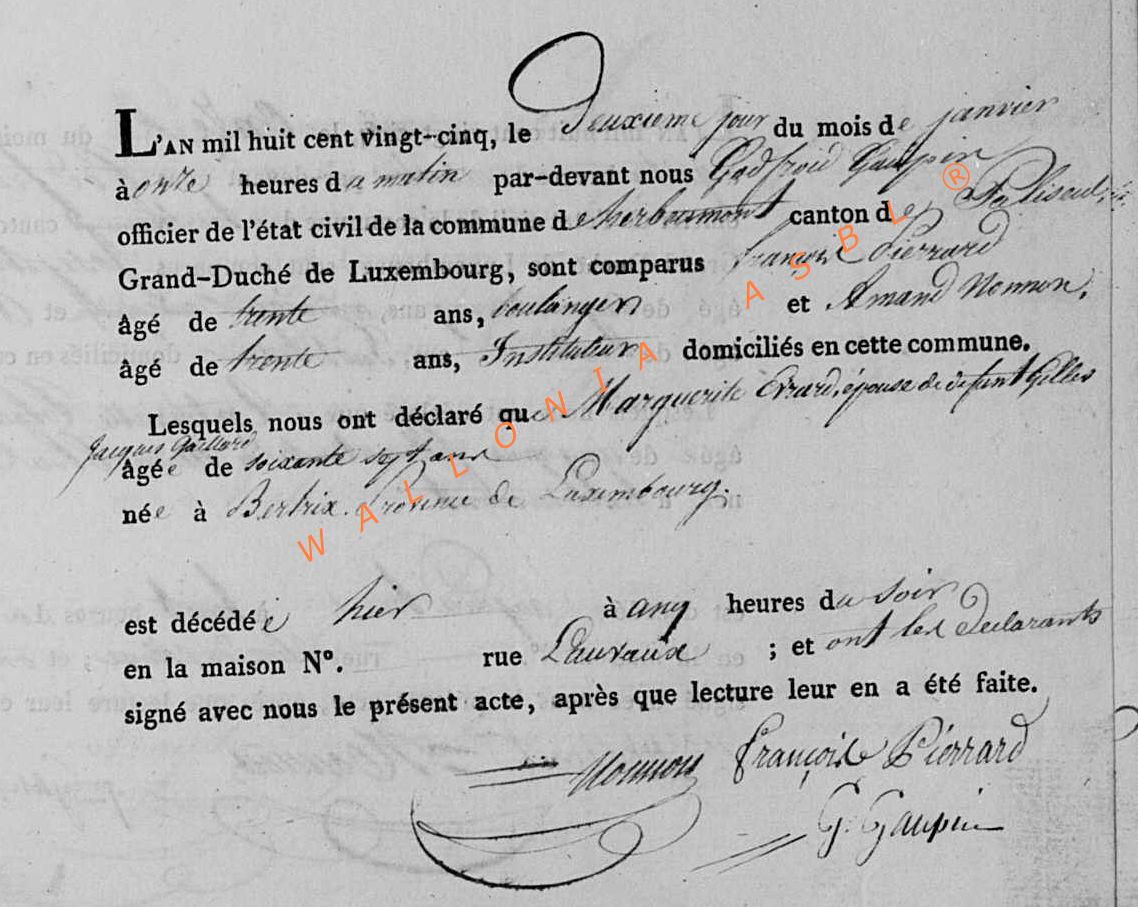 L'AN mil huit cent vingt-cinq, le Deuxieme jour du mois de janvier
à onze heures du matin par-devant nous Godfroid Gaupin
officier de l'état civil de la commune d'herbeumont canton de Paliseul,
Grand-Duché de Luxembourg, sont comparus françois Pierrard
âgé de trente ans, boulanger et Amand Nonnon,
âgé de trente ans, Instituteur domiciliés en cette commune.
Lesquels nous ont déclaré que Marguerite Evrard, épouse de defunt Gilles
Jacques Gaillard
âgée de soixante sept ans
née à Bertrix. province de Luxembourg.
est décédée hier à cinq heures du soir
en la maison N°. rue Lauvaux ; et ont les Declarants
signé avec nous le présent acte, après que lecture leur en a été faite.
Nonnon François Piérrard
G. Gaupin
WALLONIA ASBL ®